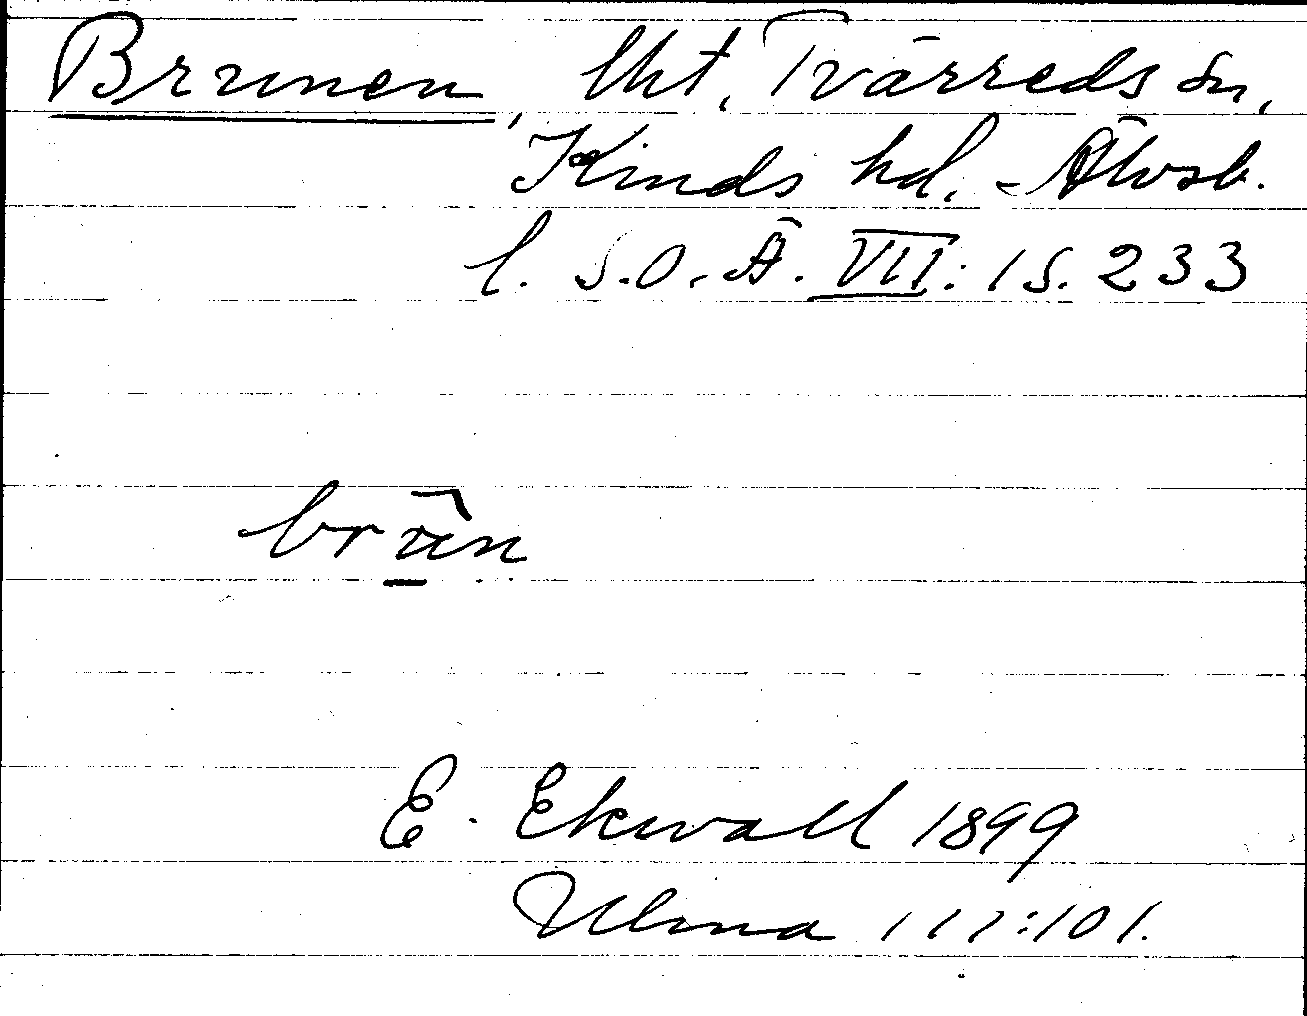 Brunen, lht, Tvärreds sn,
Kinds hd. Älvsb.
l. S.O.Ä. VII: 1 S. 233
brün
E. Ekwall 1899
Ulma 111:101.